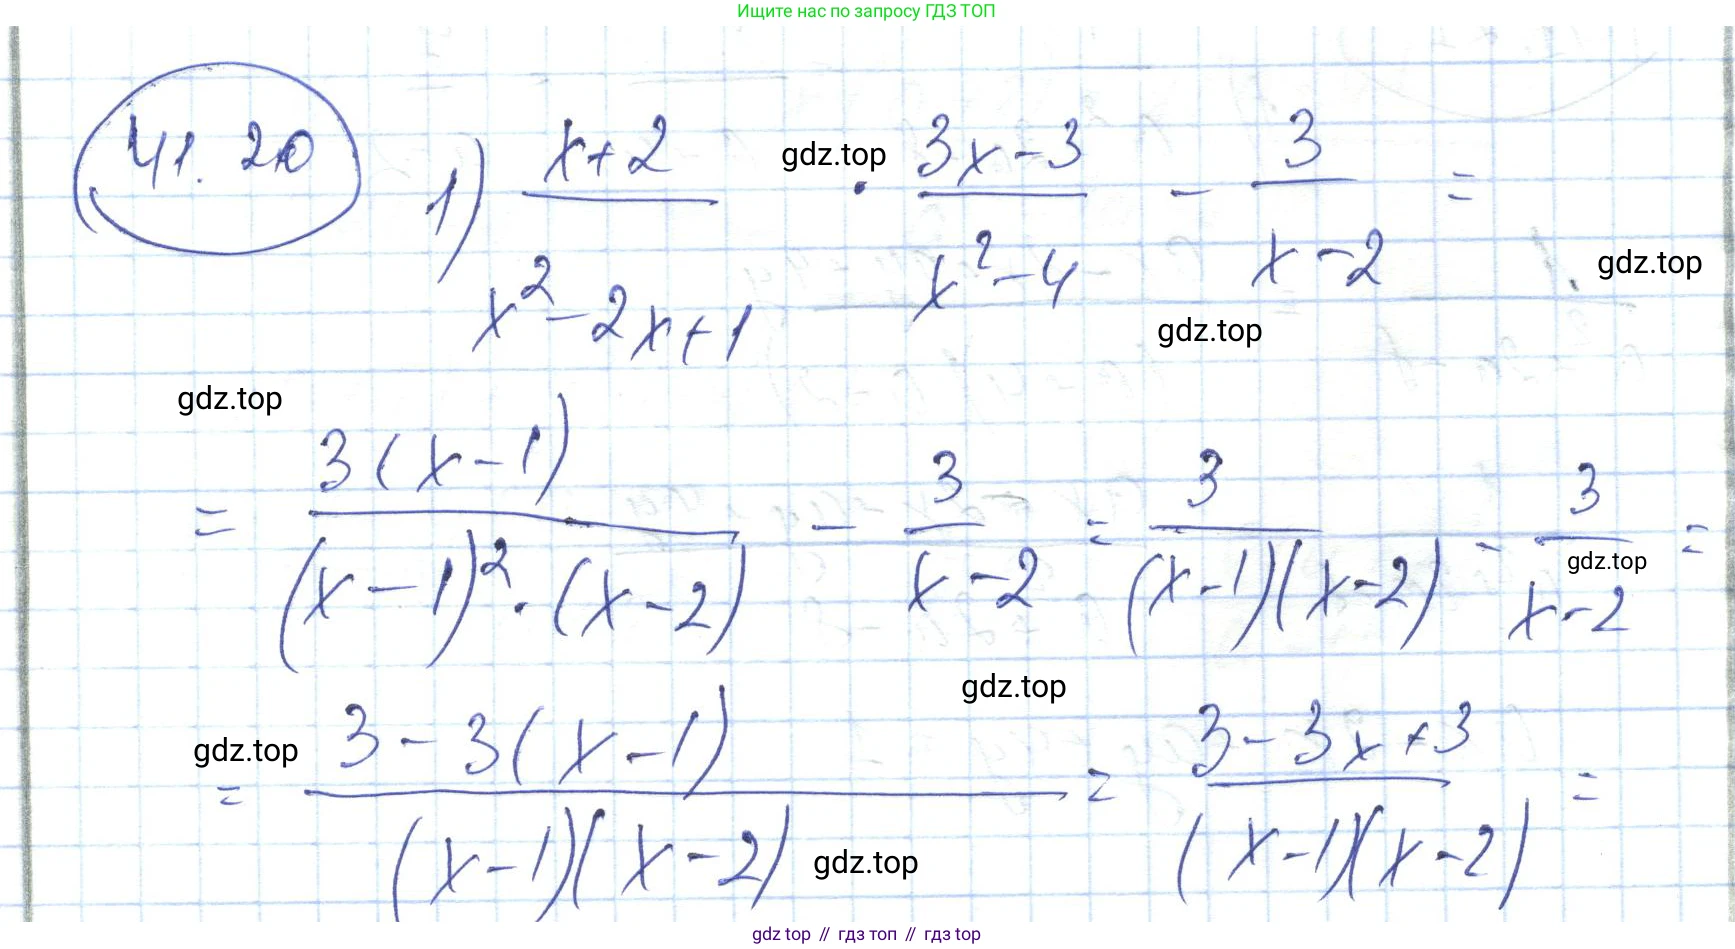 Ищите нас по запросу ГДЗ ТОП
41.20 1) (x+2)/(x²-2x+1) · (3x-3)/(x²-4) - 3/(x-2) =
gdz.top
gdz.top
gdz.top
gdz.top
= 3(x-1)/((x-1)²·(x-2)) - 3/(x-2) = 3/((x-1)(x-2)) - 3/(x-2) =
gdz.top
gdz.top
gdz.top
= (3-3(x-1))/((x-1)(x-2)) = (3-3x+3)/((x-1)(x-2)) =
gdz.top
gdz top // гдз топ // гдз top